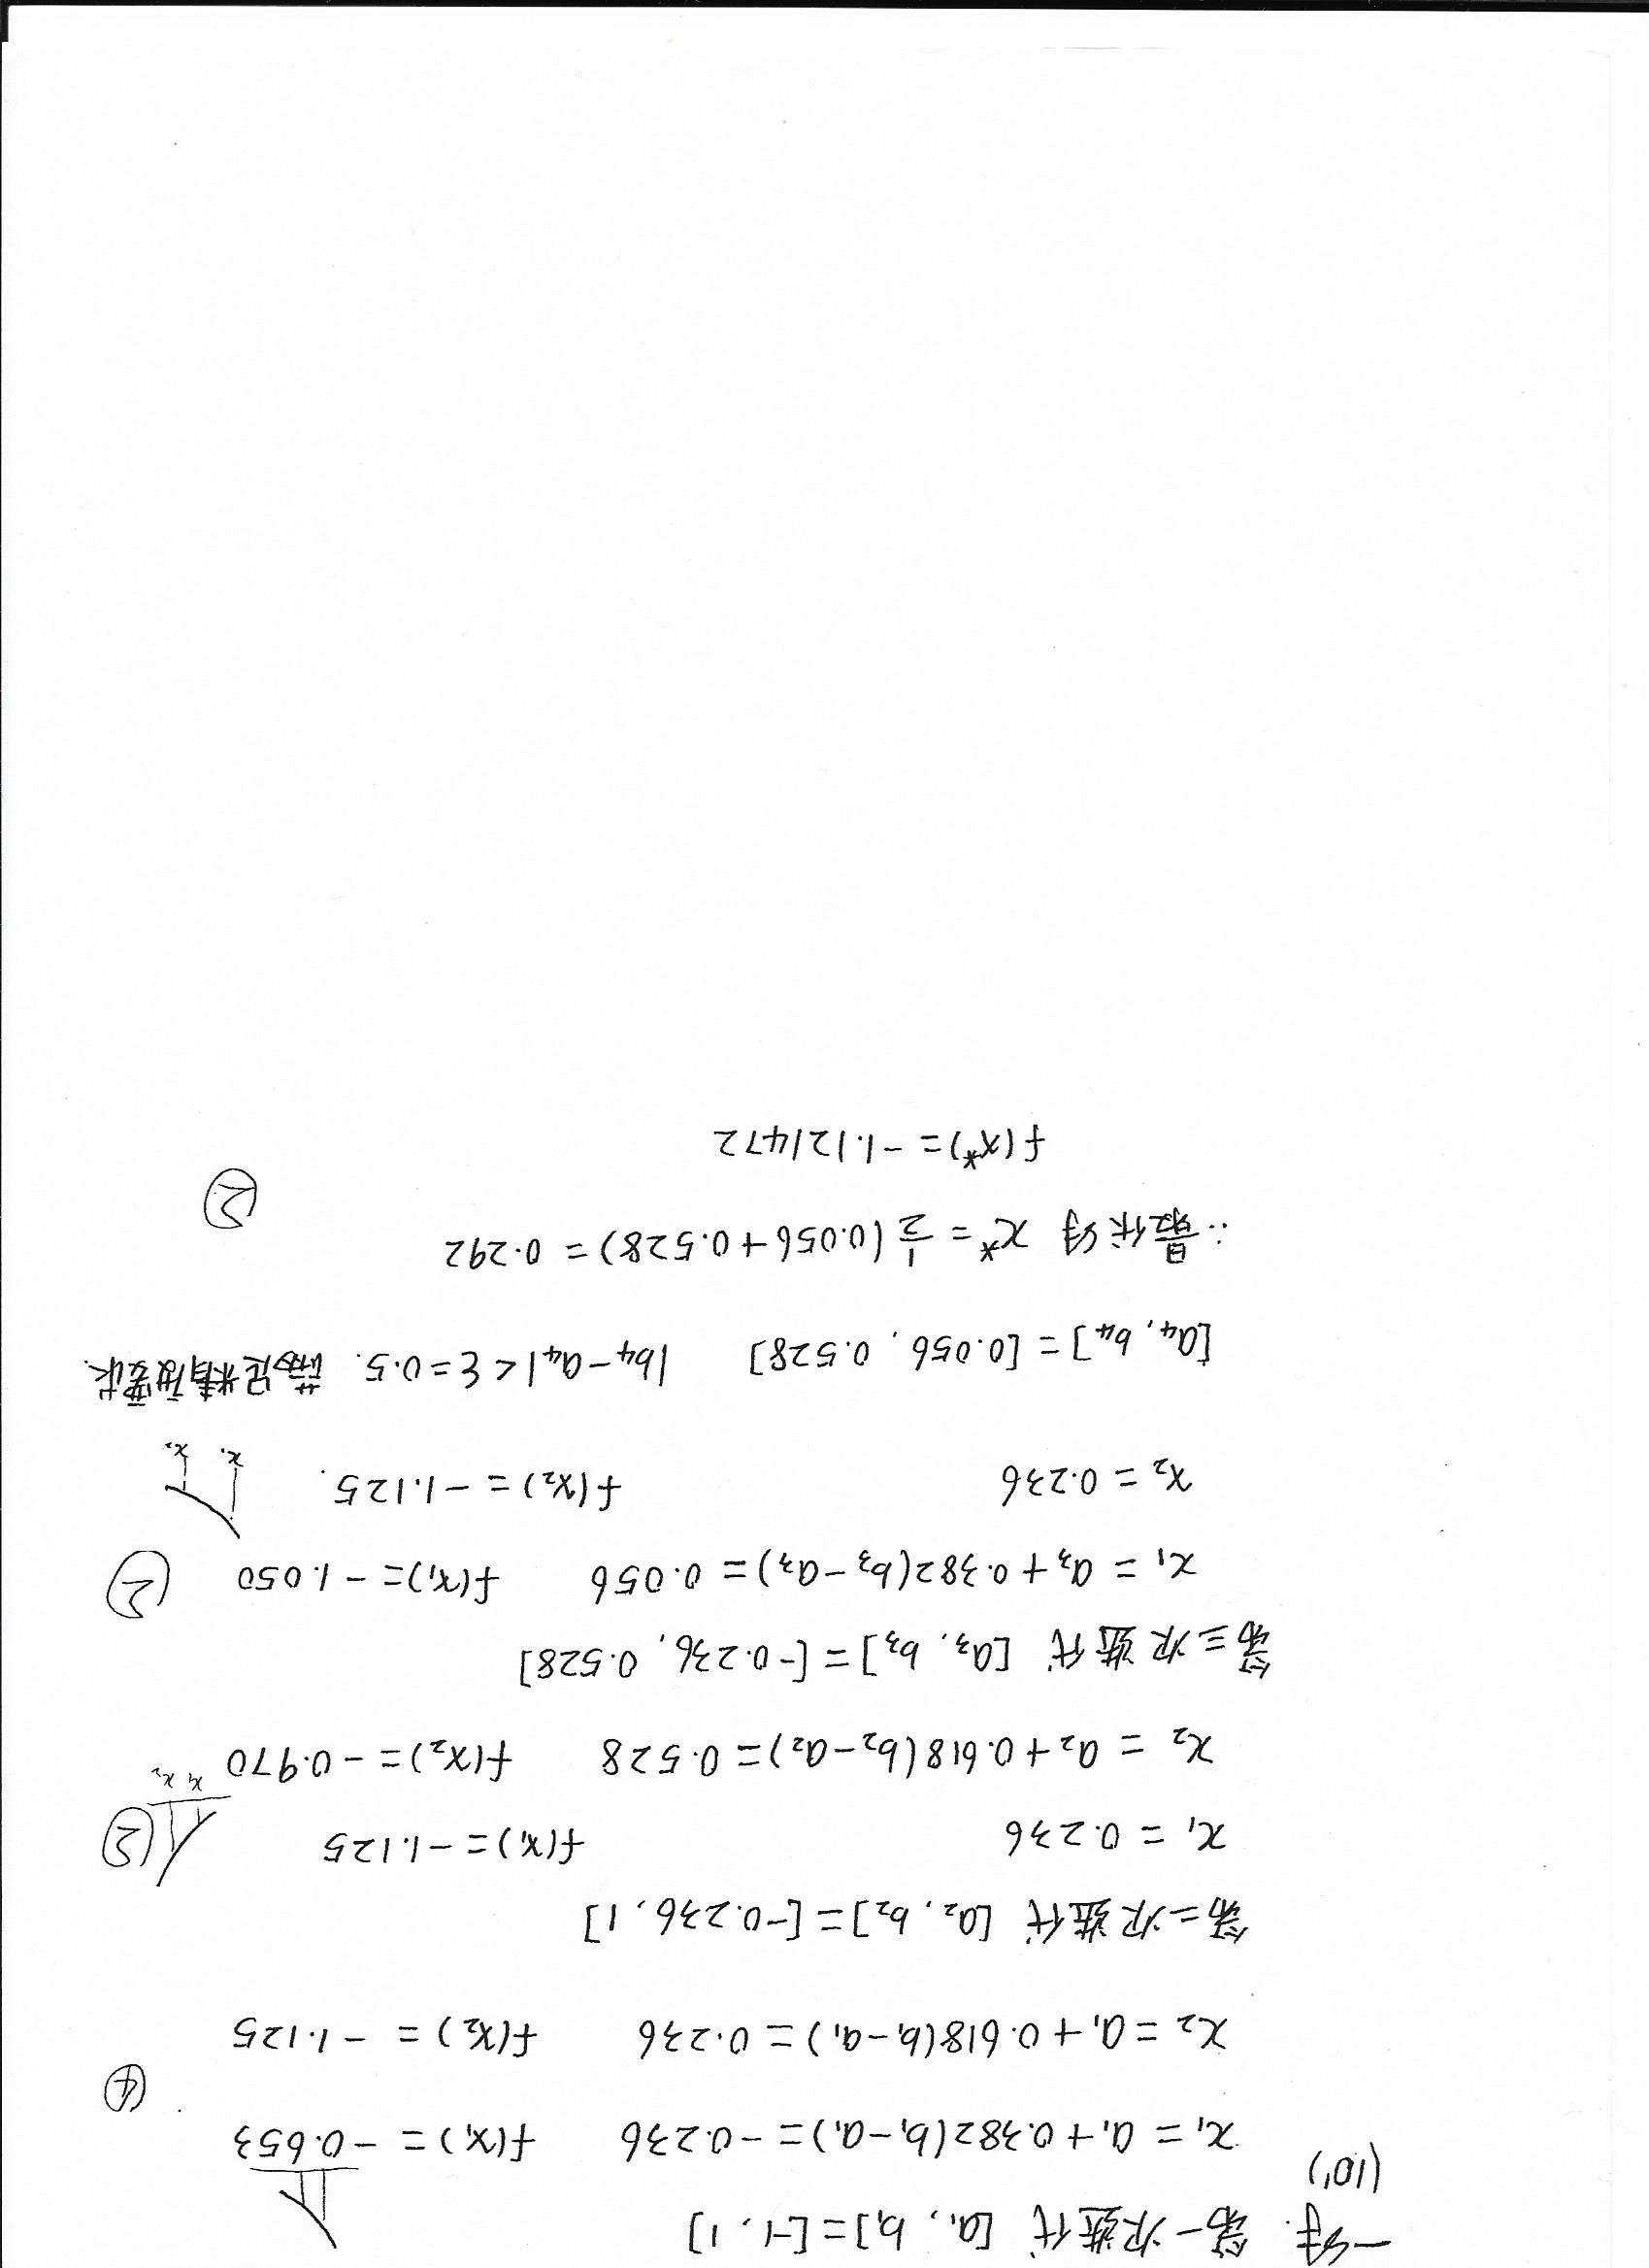 一. 解. 第一次迭代 [a₁, b₁] = [-1, 1]
(10')
x₁ = a₁ + 0.382(b₁-a₁) = -0.236 f(x₁) = -0.653
④
x₂ = a₁ + 0.618(b₁-a₁) = 0.236 f(x₂) = -1.125
第二次迭代 [a₂, b₂] = [-0.236, 1]
x₁ = 0.236 f(x₁) = -1.125
②
x₁ x₂
x₂ = a₂ + 0.618(b₂-a₂) = 0.528 f(x₂) = -0.970
第三次迭代 [a₃, b₃] = [-0.236, 0.528]
x₁ = a₃ + 0.382(b₃-a₃) = 0.056 f(x₁) = -1.050 ②
x₂ = 0.236 f(x₂) = -1.125.
x₁ x₂
[a₄, b₄] = [0.056, 0.528] |b₄-a₄| < ε = 0.5. 满足精度要求.
∴ 最优解 x* = 1/2 (0.056 + 0.528) = 0.292
②
f(x*) = -1.121472